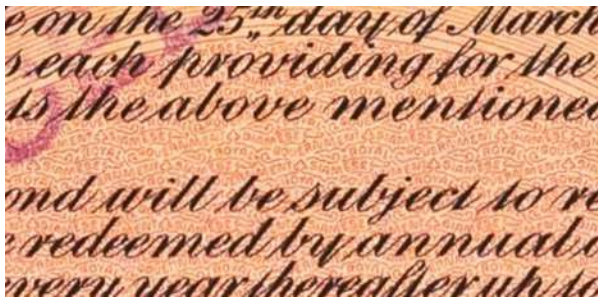 e on the 25th day of March
s each providing for the
ts the above mentioned
ond will be subject to re
redeemed by annual
every year thereafter up to